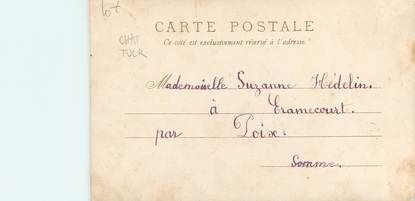 lot
CHAT
TUCK
CARTE POSTALE
Ce côté est exclusivement réservé à l'adresse.
Mademoiselle Suzanne Hédelin.
à Eramecourt.
par Poix.
Somme.